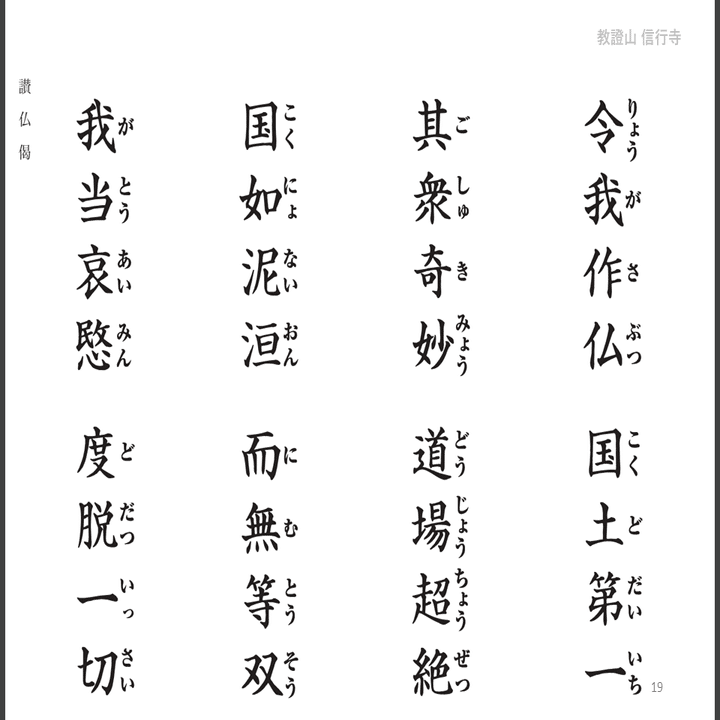 教證山 信行寺
令我作仏 国土第一
りょう が さ ぶつ こく ど だい いち
其衆奇妙 道場超絶
ご しゅ き みょう どう じょう ちょう ぜつ
国如泥洹 而無等双
こく にょ ない おん に む とう そう
我当哀愍 度脱一切
が とう あい みん ど だつ いっ さい
讃仏偈
19